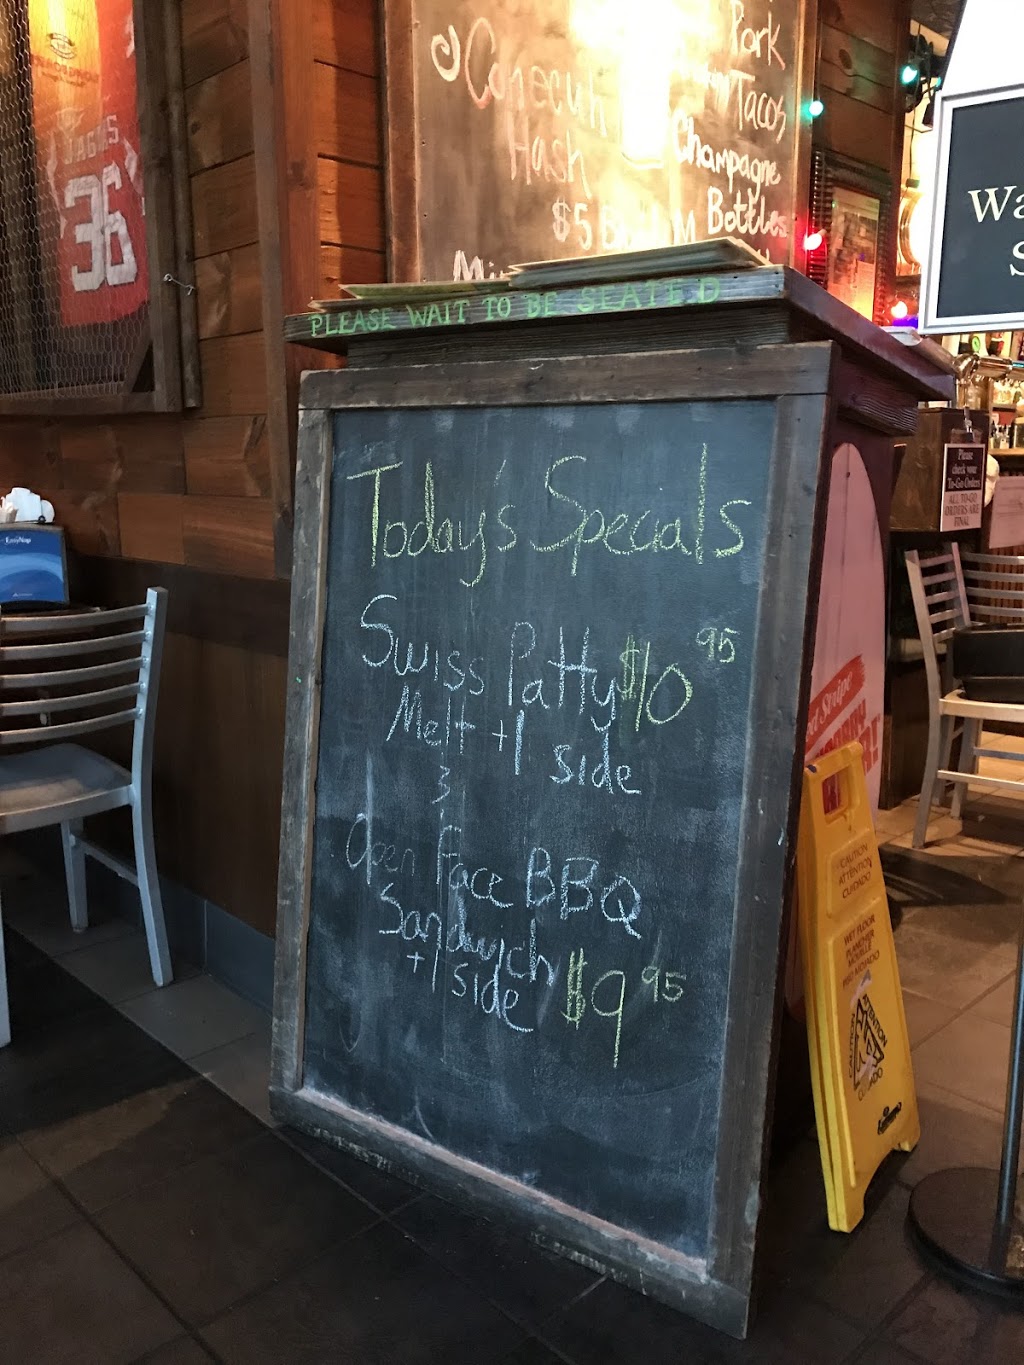 Pork
Conecuh
Tacos
Hash
Champagne
$5
Bottles
JAGUARS
36
PLEASE WAIT TO BE SEATED
Today's Specials
Swiss Patty $10 95
Melt +1 side
3
Open Face BBQ
Sandwich
+1 side $9 95
Please
check your
To-Go Orders
ALL TO-GO
ORDERS ARE
FINAL
EasyNap
CAUTION
ATTENTION
CUIDADO
WET FLOOR
PLANCHER
MOUILLÉ
PISO MOJADO
CAUTION
ATTENTION